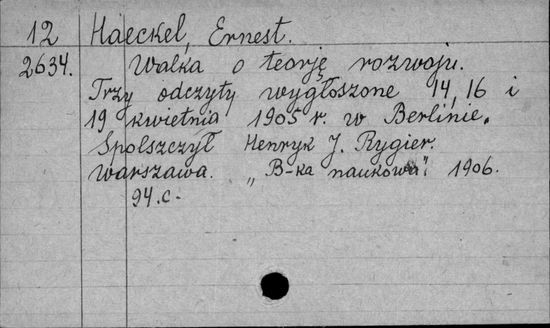 12 Haeckel, Ernest.
2634. Walka o teorję rozwoju.
Trzy odczyty wygłoszone 14, 16 i
19 kwietnia 1905 r. w Berlinie.
Spolszczył Henryk J. Rygier.
Warszawa. „B-ka naukowa". 1906.
94.c.